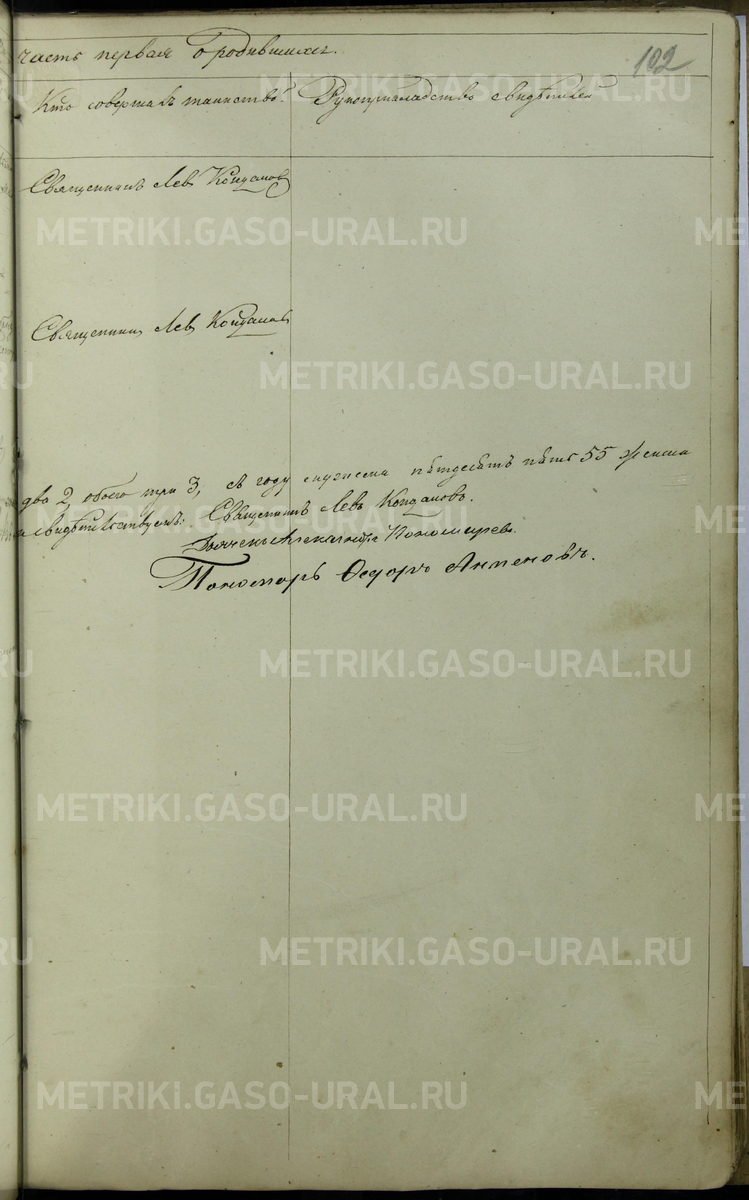 часть первая о родившихся.
102
Кто совершалъ таинство? Рукоприкладство свидѣтелей
Священникъ Левъ Конdаковъ
Священникъ Левъ Кондаковъ
два 2 обоего три 3, въ году мужеска пятдесятъ пять 55 женска
свидѣтельствуемъ: Священникъ Левъ Кондаковъ.
Пономаревъ.
Пономарь Ѳедоръ
METRIKI.GASO-URAL.RU